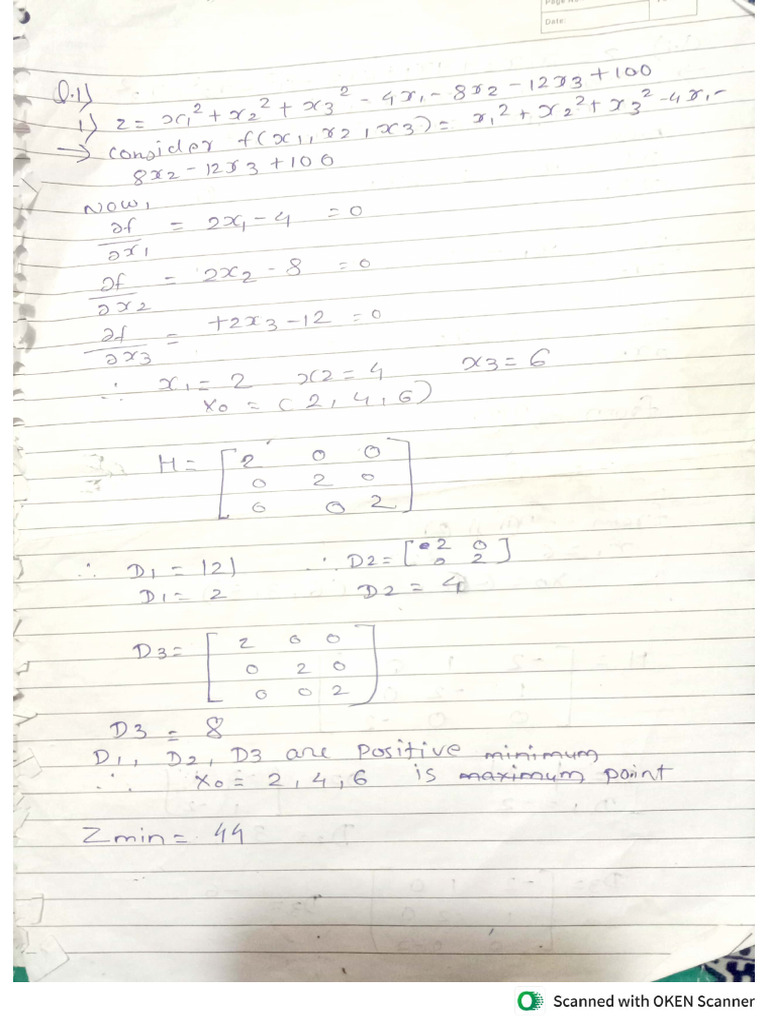 Page No
Date:
Q.1)
1) z = x1² + x2² + x3² - 4x1 - 8x2 - 12x3 + 100
→ consider f(x1, x2, x3) = x1² + x2² + x3² - 4x1 -
8x2 - 12x3 + 100
Now,
∂f/∂x1 = 2x1 - 4 = 0
∂f/∂x2 = 2x2 - 8 = 0
∂f/∂x3 = +2x3 - 12 = 0
∴ x1 = 2 x2 = 4 x3 = 6
x0 = (2, 4, 6)
H = [2 0 0
0 2 0
0 0 2]
∴ D1 = |2| ∴ D2 = [2 0
0 2]
D1 = 2 D2 = 4
D3 = [2 0 0
0 2 0
0 0 2]
D3 = 8
D1, D2, D3 are positive minimum
∴ x0 = 2, 4, 6 is maximum point
Zmin = 44
Scanned with OKEN Scanner